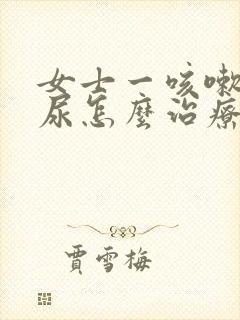 女士一咳嗽
尿怎麼治療
賈雪梅